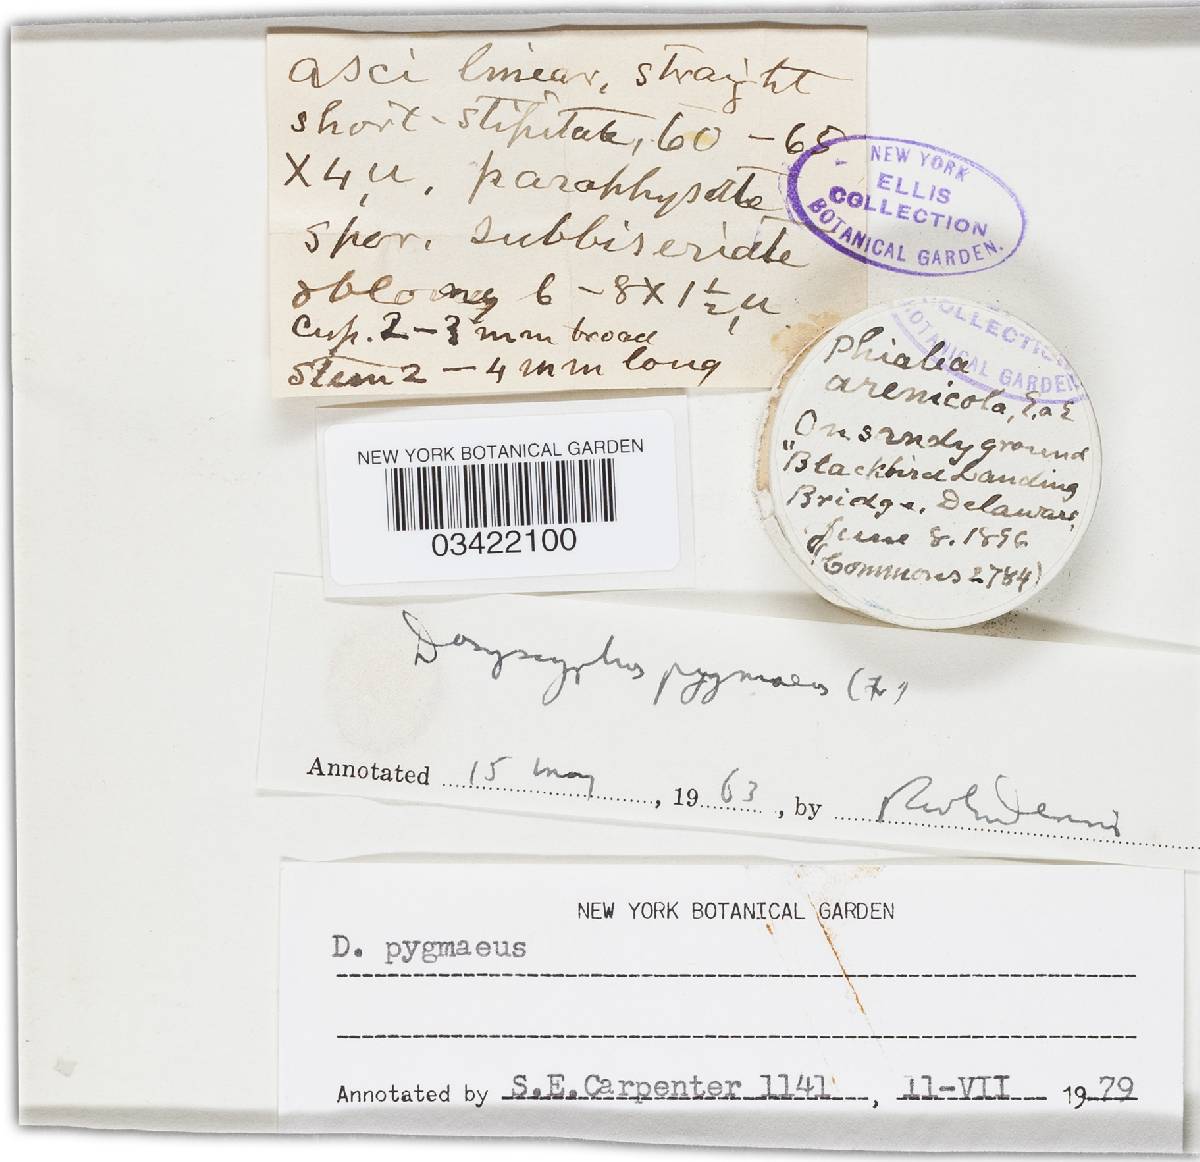 asci linear, straight
short-stipitate, 60 - 65
X 4 µ, paraphysate
spor. subbiseriate
oblong 6 - 8 X 1 1/2 µ
Cup. 2 - 3 mm broad
stem 2 - 4 mm long
NEW YORK
ELLIS
COLLECTION
BOTANICAL GARDEN.
COLLECTION
BOTANICAL GARDEN
Phialea
arenicola, E. & E
On sandy ground
"Blackbird Landing
Bridge, Delaware,
June 8. 1896
(Commons 2784)
NEW YORK BOTANICAL GARDEN
03422100
Dasyscyphus pygmaeus (Fr)
Annotated 15 May, 1963, by RWG Dennis
NEW YORK BOTANICAL GARDEN
D. pygmaeus
Annotated by S.E.Carpenter 1141, 11-VII 1979